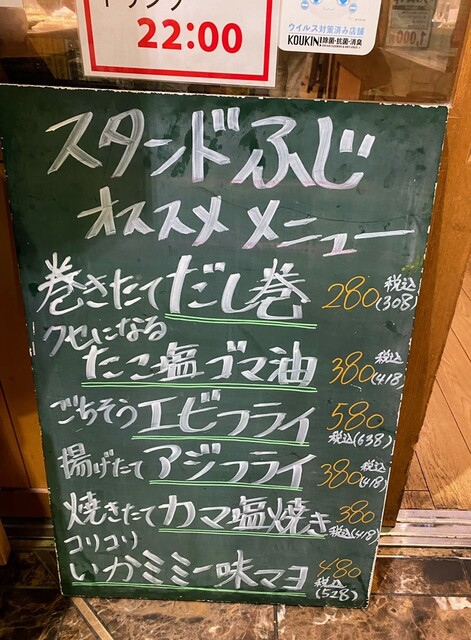 ドリンク
22:00
ウイルス対策済み店舗
KOUKIN! 除菌・抗菌・消臭
スタンドふじ
オススメメニュー
巻きたてだし巻 280 税込(308)
クセになる
たこ塩ゴマ油 380 税込(418)
ごちそうエビフライ 580 税込(638)
揚げたてアジフライ 380 税込(418)
焼きたてカマ塩焼き 380 税込(418)
コリコリ
いかミミ一味マヨ 480 税込(528)